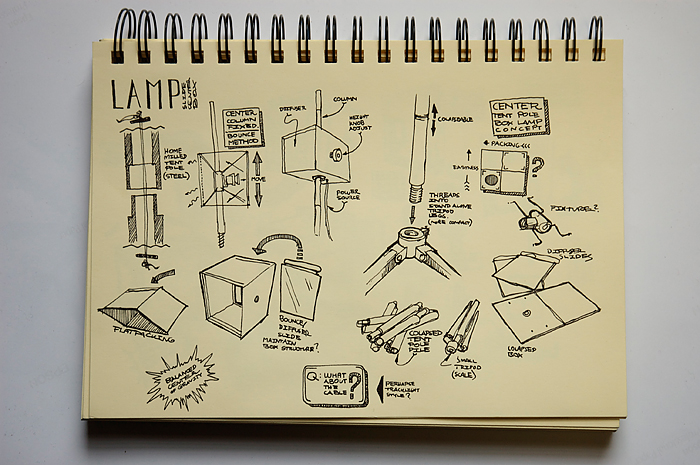 LAMP
SLIDE
CENTER
BOX
HOME
MILLED
TENT
POLE
(STEEL)
CENTER
COLUMN
FIXED.
BOUNCE
METHOD
MOVE
DIFFUSER
COLUMN
HEIGHT
KNOB
ADJUST
POWER
SOURCE
COLAPSABLE
THREADS
INTO
STAND ALONE
TRIPOD
LEGS.
(NOTE CONTACT)
CENTER
TENT POLE
BOX LAMP
CONCEPT
PACKING <<<
EASINESS
?
FIXTURE?
DIFFUSER
SLIDES
FLATPACKING
BOUNCE/
DIFFUSER
SLIDE
MAINTAIN
BOX STRUCTURE?
COLAPSED
TENT
POLE
PILE
SMALL
TRIPOD
(SCALE)
COLAPSED
BOX
BALANCED
CENTER
OF GRAVITY
Q: WHAT
ABOUT
THE
CABLE?
PERHAPS
TRACKLIGHT
STYLE?